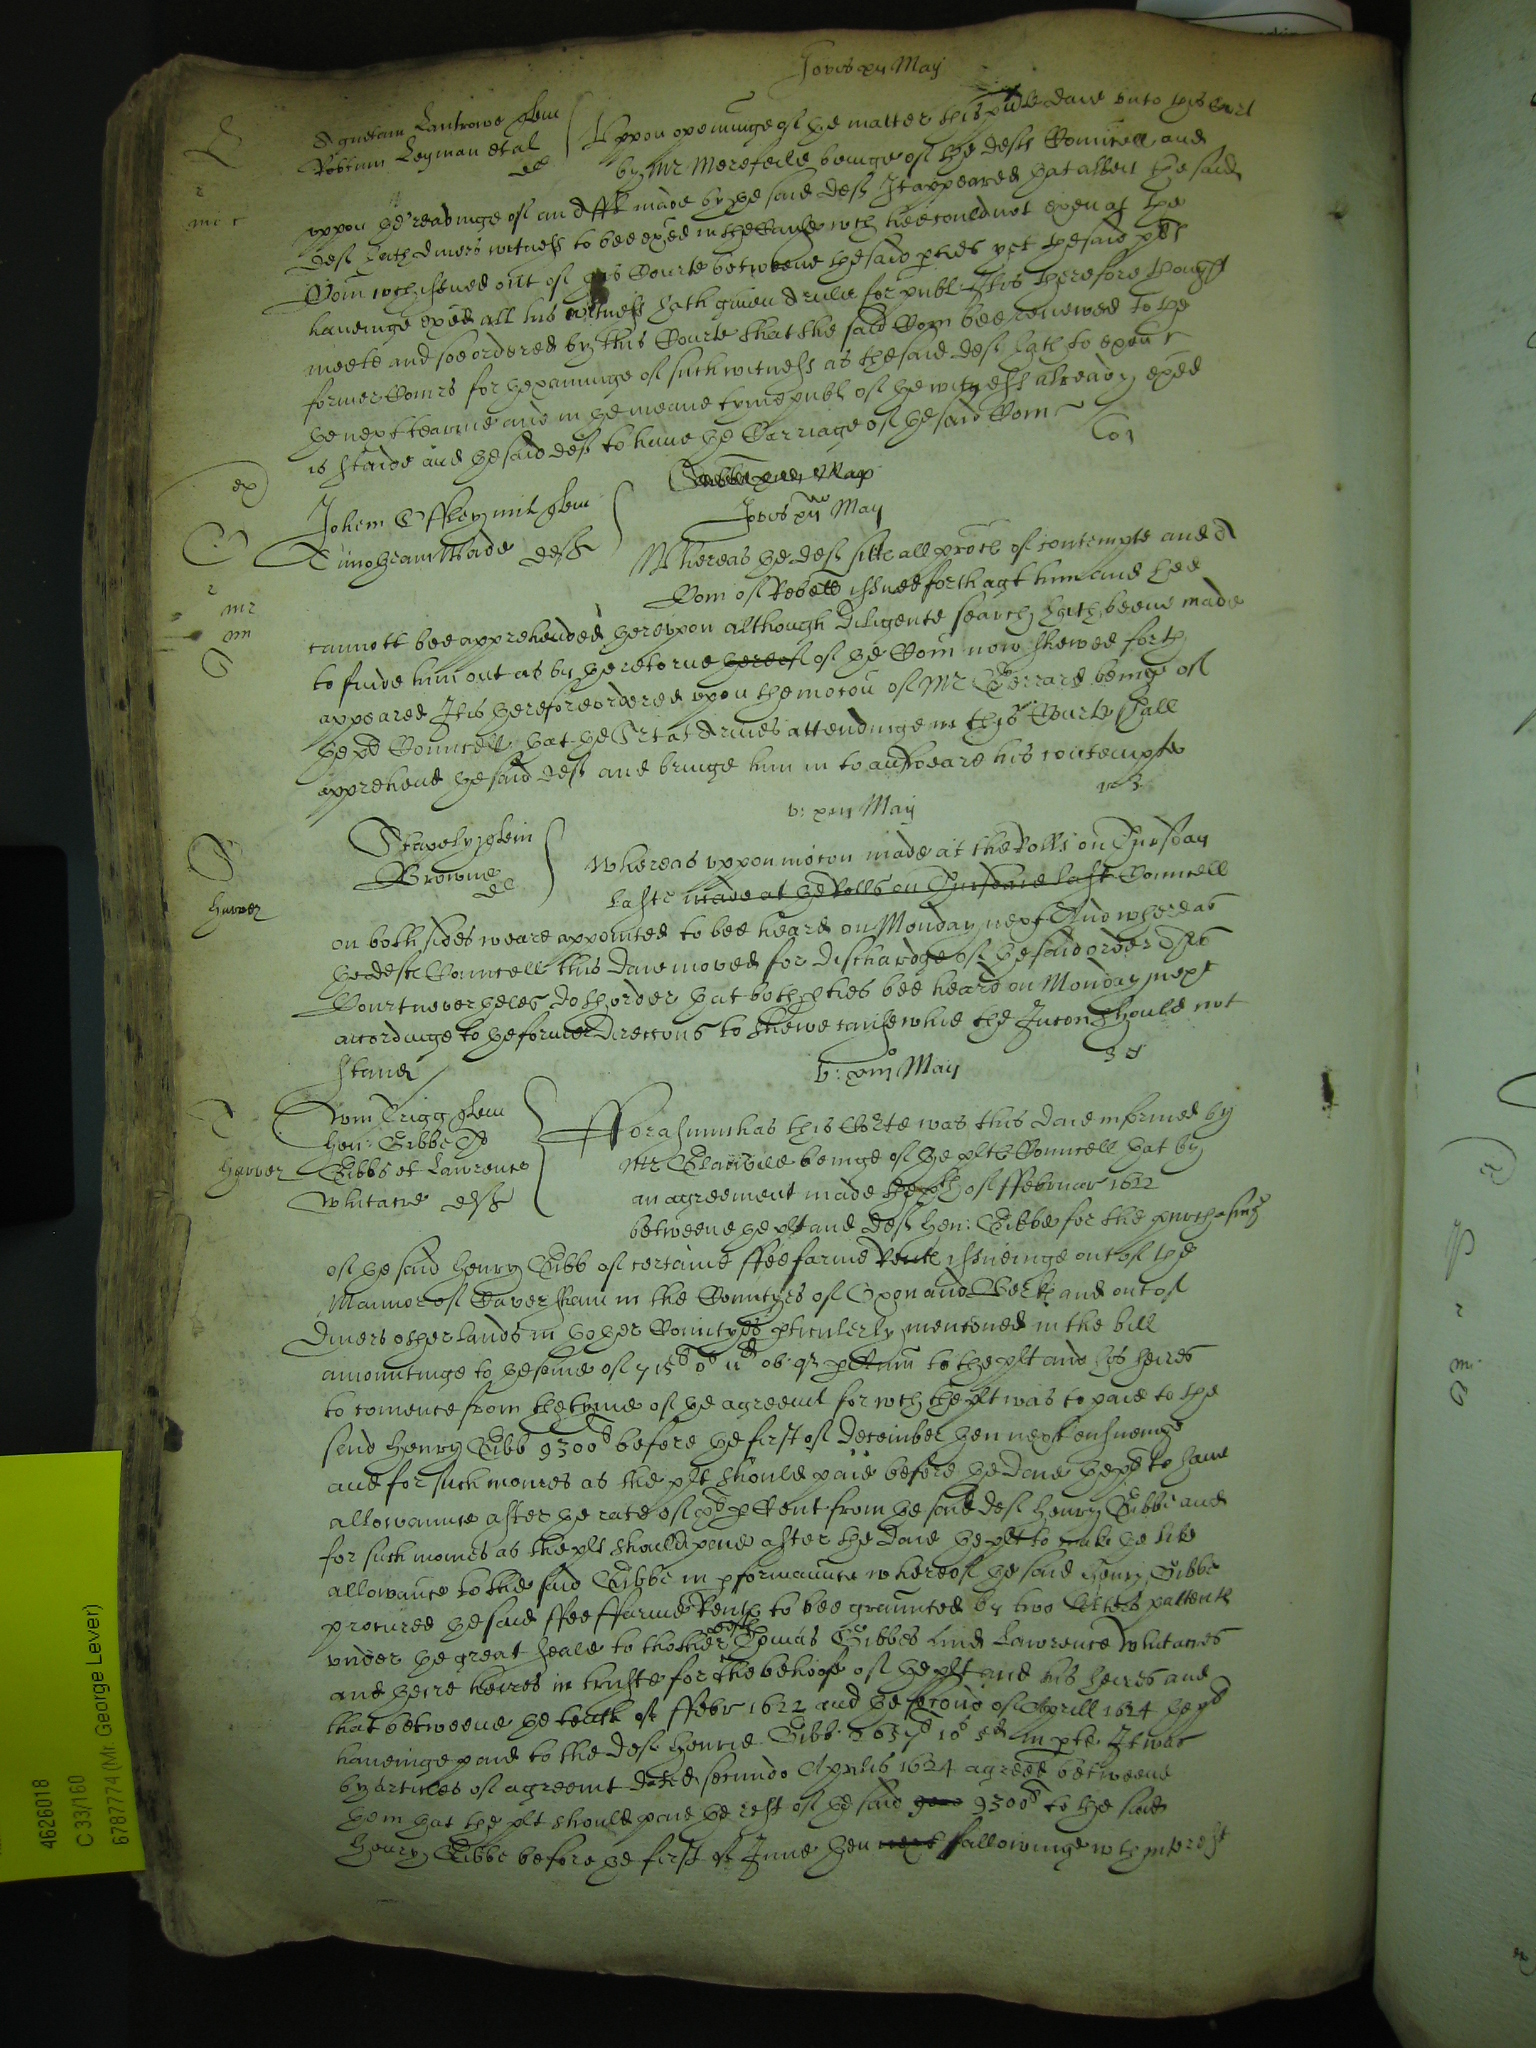 Jovis xii May
Agnetam Lantrowe quer
Robtum Leyman et al
def
Uppon openinge of the matter this pnte daie unto this Court
by Mr Merefeild beinge of the defts Councell and
uppon the readinge of an Afft made by the said deft It appeared that albeit the said
deft hath divers witness to bee exed in the Cause wch hee could not exen at the
Com wch issued out of this Courte betweene the said pties yet the said plt
haveinge exed all his witness hath given a rule for publ It is therefore thought
meete and soe ordered by this Courte that the said Com bee renewed to the
former Comrs for thexaminge of such witness as the said deft hath to exen
the next tearme and in the meane tyme publ of the witness already exed
is staide and the said deft to have the Carriage of the said Com
ex
Sabbti May
Jovis xii May
Johem Offley mil quer
Wade deft
Whereas the deft sitts all proces of contempte and a
Com of Rebell issued forth agt him and hee
cannott bee apprehended thereupon although diligente search hath beene made
to finde him out as by the retorne thereof of the Com now shewed forth
appeared It is therefore ordered upon the mocon of Mr Gerrard being of
the plts Councell that the Srt at Armes attendinge in this Courte shall
apprehend the said deft and bringe him in to answeare his contempte
v: xiii May
Stapely quer
Browne
def
harver
Whereas uppon mocon made at the Rolls on Thursday
laste made at the Rolls on Thursdaie last Councell
on both sides weare appointed to bee heard on Monday next And whereas
the defts Councell this daie moved for dischardge of the said order This
Court nevertheles doth order that both pties bee heard on Monday next
accordinge to the former direccons to shewe cause whie the Inion should not
stand
v: xiii May
Wm Trigg quer
Hen: Gibbe
Gibbs et Lawrence
Whitacre defts
harver
Fforasmuch as this Courte was this daie informed by
Mr Glanvile beinge of the plts Councell that by
an agreement made the xth of Ffebruar 1622
betweene the plt and deft Hen: Gibbe for the purchasing
of the said Henry Gibb of certaine ffee farme rents issueinge out of the
Mannor of Caversham in the Countyes of Oxon and Berk and out of
divers other lands in other Countyes pticulerly menconed in the bill
amountinge to the some of ob qr p Annu to the plt and his heires
to comence from the tyme of the agreemt for wch the plt was to paie to the
said Henry Gibb 9300 before the first of December then next ensueinge
and for such monies as the plt should paie before the daie the plt to have
allowaunce after the rate of p Cent from the said deft Henry Gibbe and
for such monies as the plt should paie after the daie the plt to make the like
allowance to the said Gibbe in pformaunce whereof the said Henry Gibbe
procured the said ffee ffarme Rents to bee graunted by two letters pattents
under the great seale to thother defts Thomas Gibbes and Lawrence Whitacres
and theire heires in truste for the behoofe of the plt and his heires and
that betweene the tenth of Ffebr 1622 and the second of Aprill 1624 the plt
haveinge paid to the deft Henrie Gibb in pte It was
by articles of agreemt dated secundo Aprilis 1624 agreed betweene
them that the plt should paie the rest of the said 9300 to the said
Henry Gibbe before the first of June then next followinge wth interest
4626018
C 33/160
6787774 (Mr. George Lever)